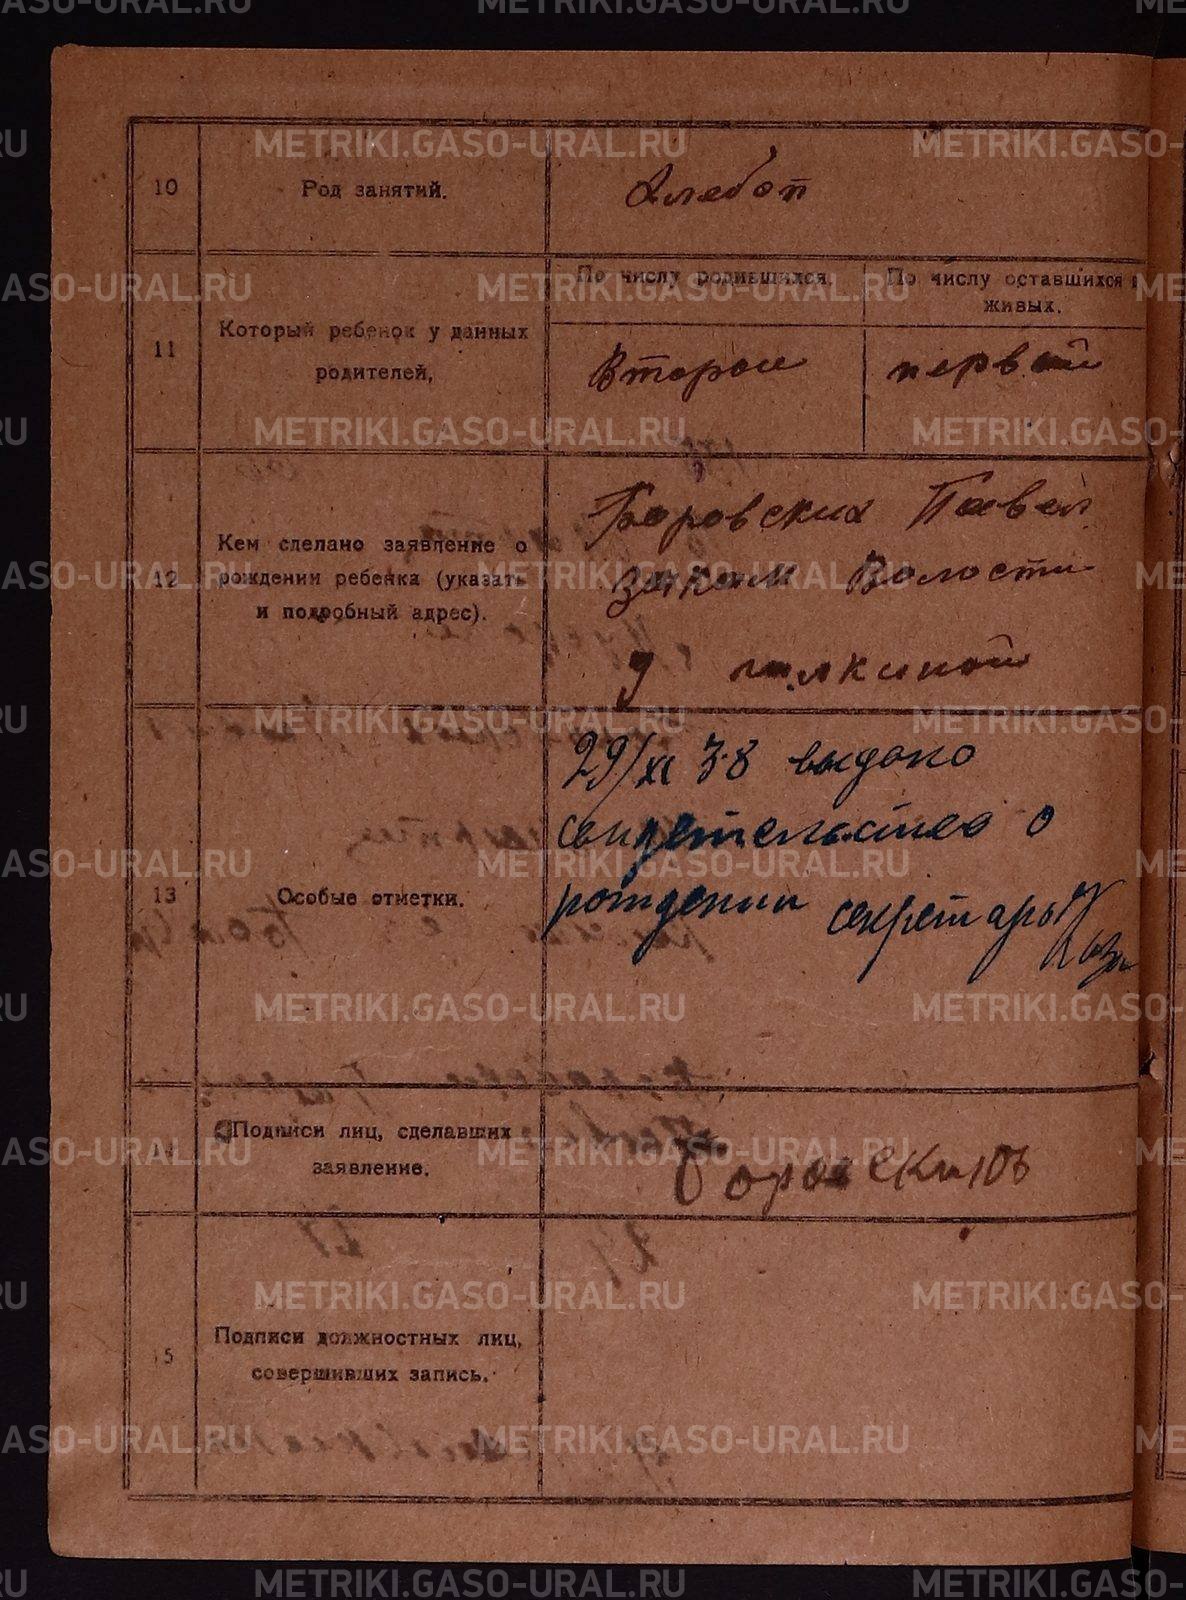 METRIKI.GASO-URAL.RU
10
Род занятий.
Хлебоп
11
Который ребенок у данных
родителей,
По числу родившихся.
По числу оставшихся в
живых.
Второй
первый
12
Кем сделано заявление о
рождении ребенка (указать
и подробный адрес).
Боровских Павел
Волости
13
Особые отметки.
29/XI 38 выдано
свидетельство о
рождении секретарь
Подписи лиц, сделавших
заявление.
5
Подписи должностных лиц,
совершивших запись.